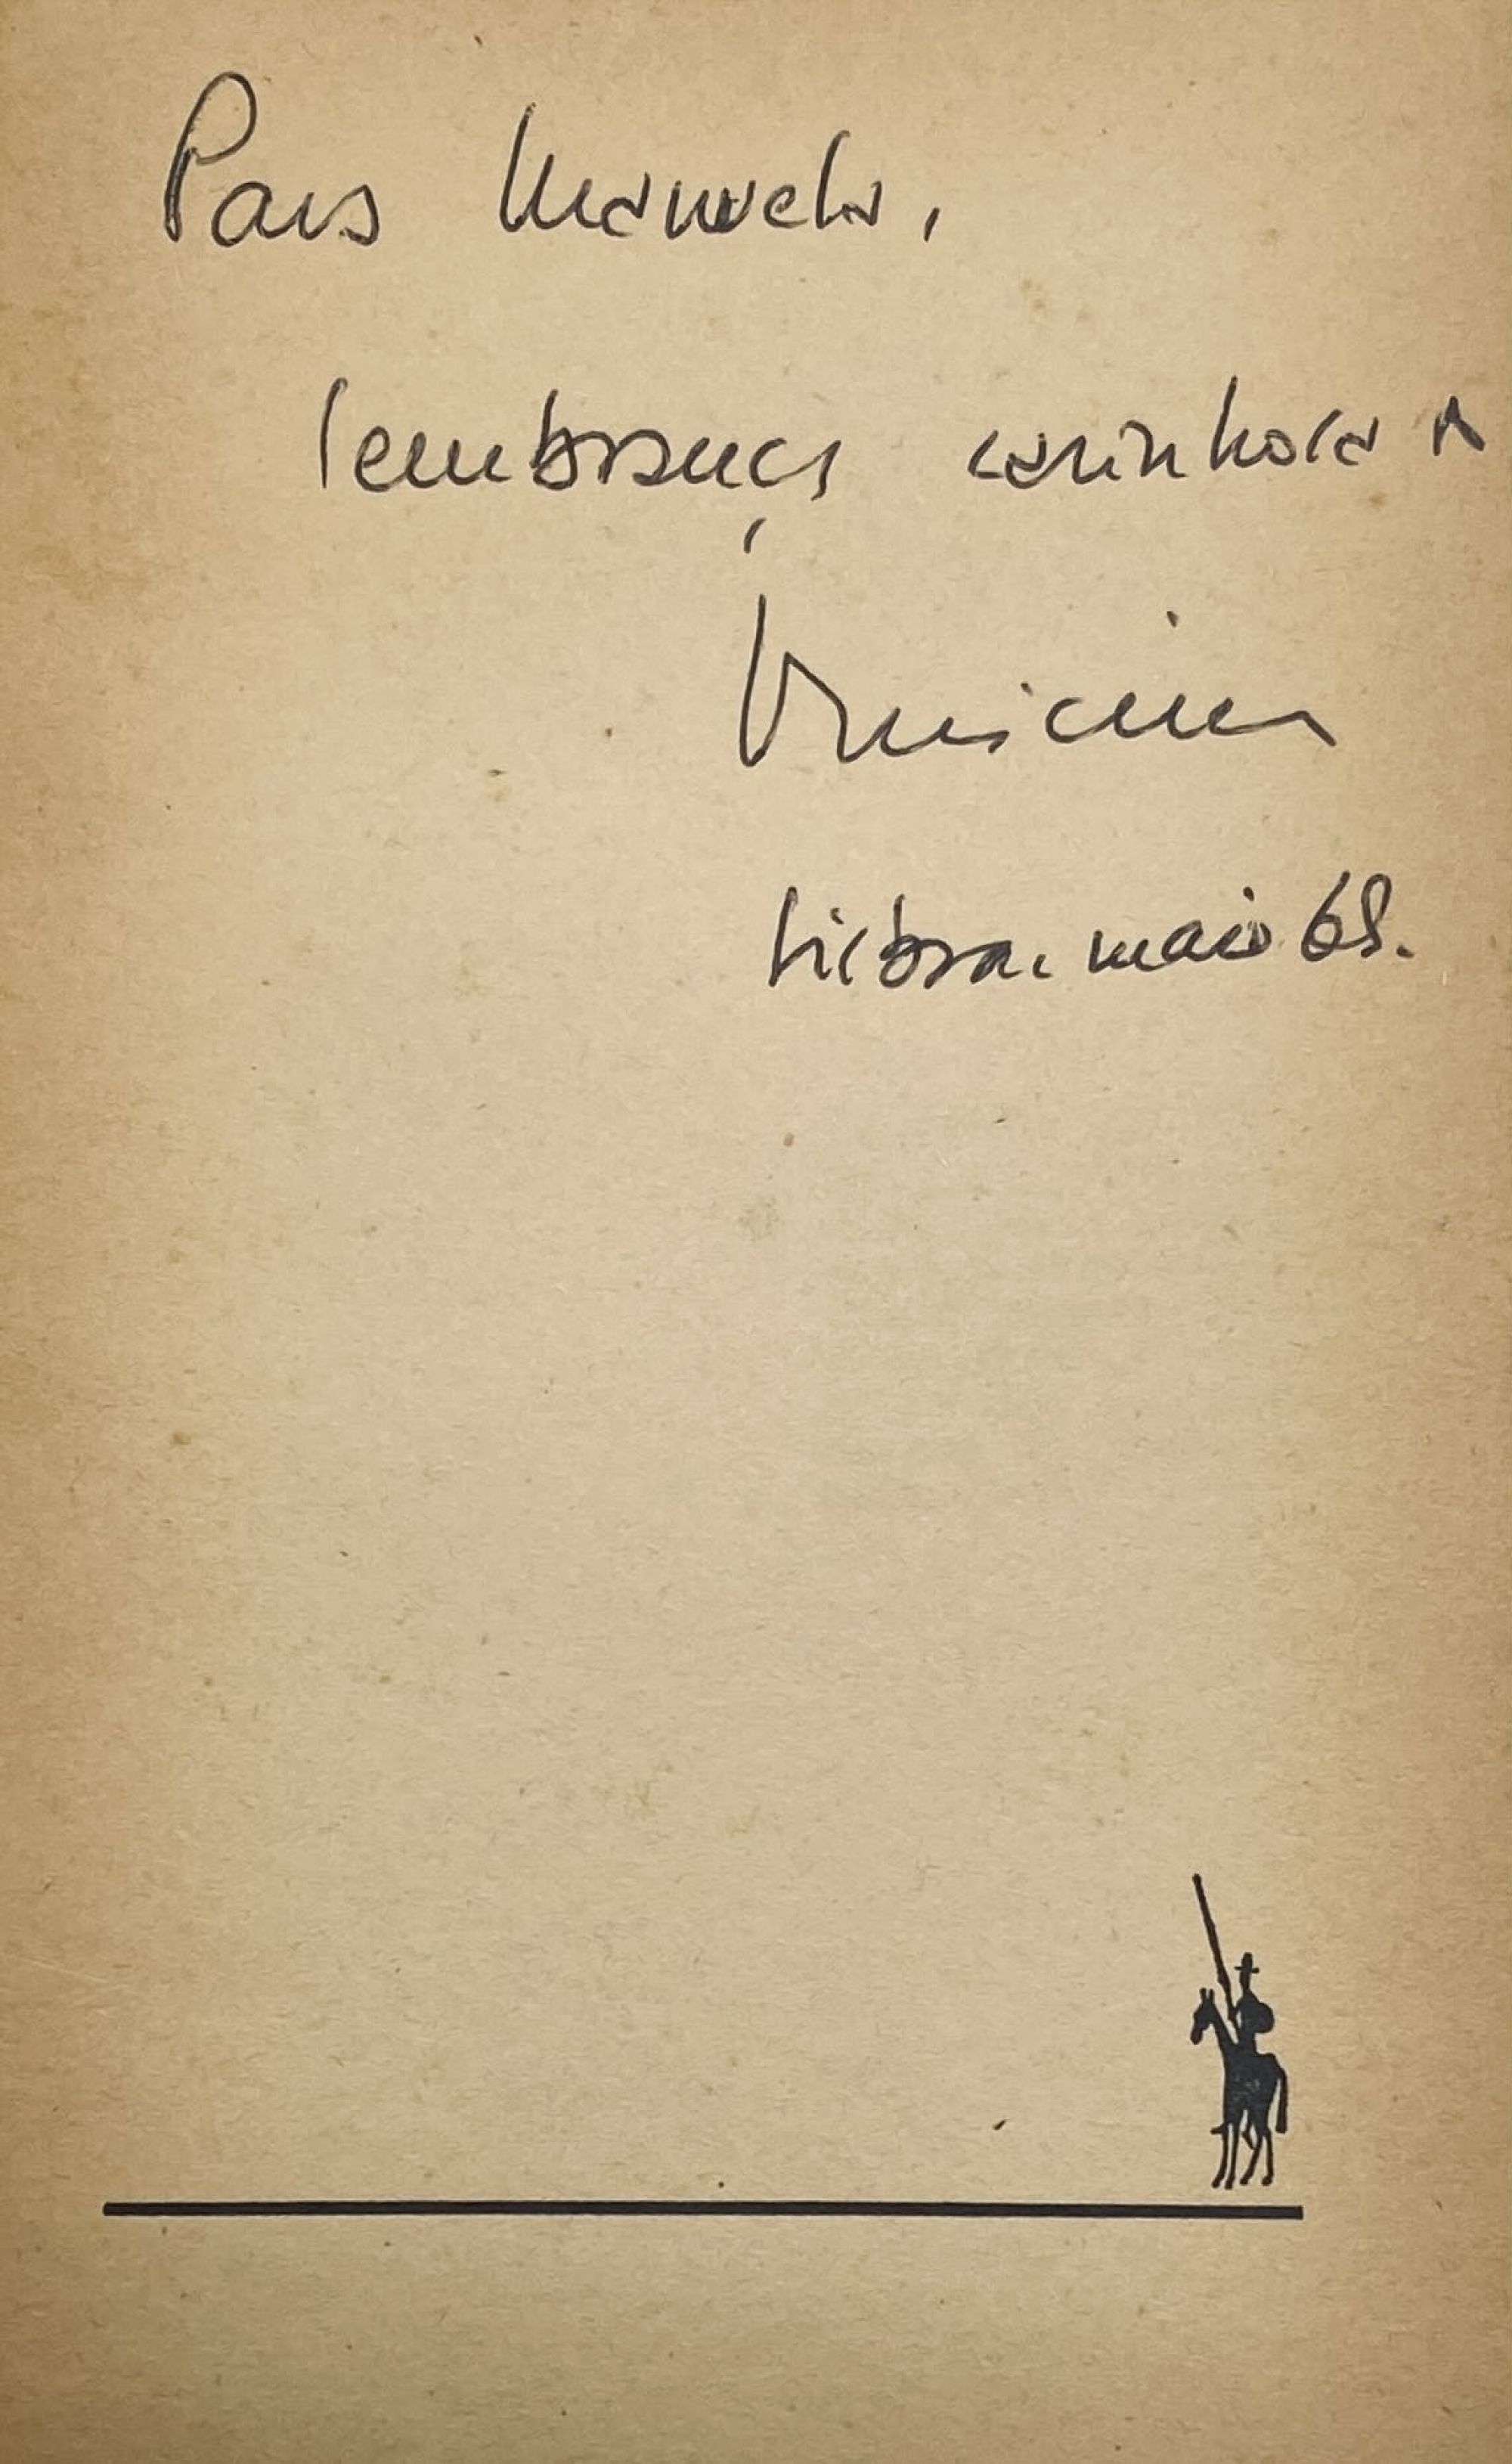 Para Manuela,
lembrança carinhosa
Vinicius
Lisboa, maio 68.